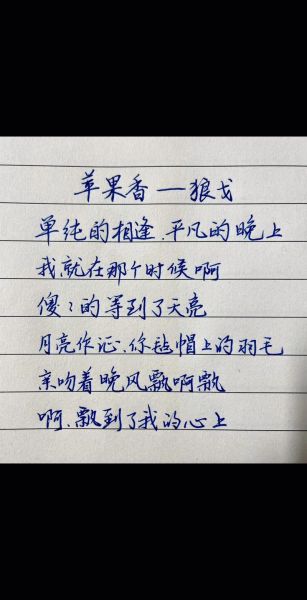 苹果香——狼戈
单纯的相逢.平凡的晚上
我就在那个时候啊
傻〻的等到了天亮
月亮作证.你毡帽上的羽毛
亲吻着晚风飘啊飘
啊.飘到了我的心上